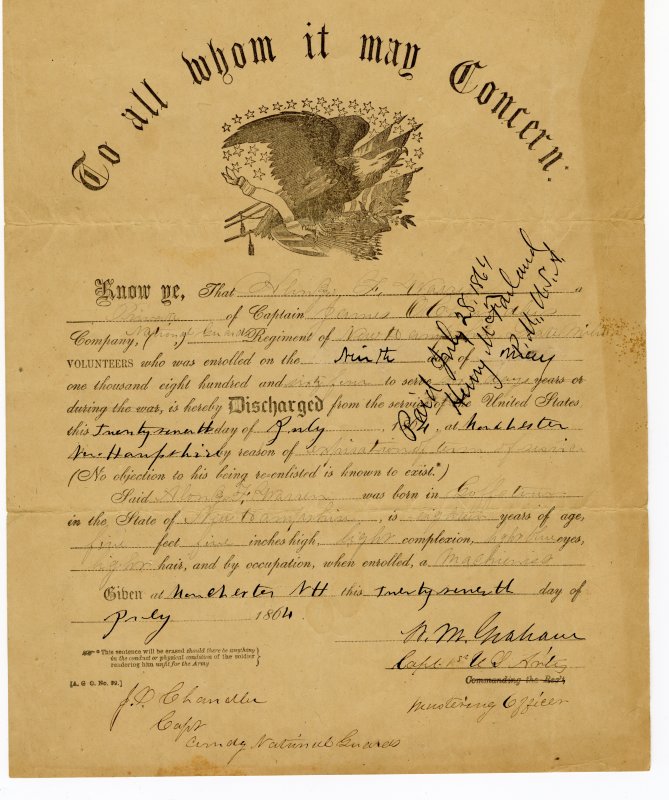 To all whom it may Concern:
Know ye, That Alonzo F. Warren a
of Captain James O. Chandler
Company, National Guards Regiment of New Hampshire
VOLUNTEERS who was enrolled on the Ninth of May
one thousand eight hundred and sixty four to serve days years or
during the war, is hereby Discharged from the service of the United States
this Twenty seventh day of July, at Manchester
New Hampshire by reason of expiration of term of service
(No objection to his being re-enlisted is known to exist.*)
Said Alonzo F. Warren was born in
in the State of New Hampshire, is years of age,
five feet five inches high, light complexion, eyes,
light hair, and by occupation, when enrolled, a Machinist
Given at Manchester NH this Twenty seventh day of
July 1864
W. M. Graham
Capt. 1st U S Arty
Commanding the Reg't
Mustering Officer
*This sentence will be erased should there be anything
in the conduct or physical condition of the soldier
rendering him unfit for the Army
[A. G. O. No. 99.]
J. O. Chandler
Capt
Comdg National Guards
Paid July 28, 1864
Henry McFarland
P. M. U.S.A